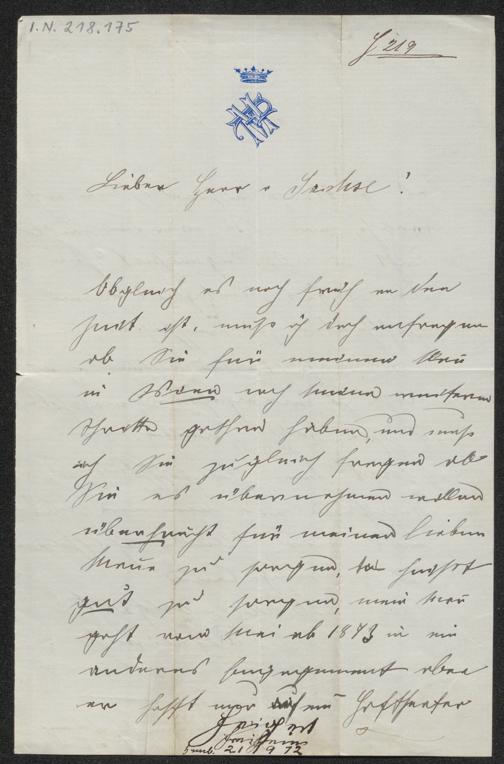 I.N. 218.175
J 219
Lieber Herr v Sachse!
Obgleich es noch früh an der
Zeit ist, muß ich doch anfragen
ob Sie für meinen Mann
in Wien noch keine weiteren
Schritte gethan haben, und muß
ich Sie zugleich fragen ob
Sie es übernehmen wollen
überhaupt für meinen lieben
Mann zu sorgen, das heißt
gut zu sorgen, mein Mann
geht vom Mai ab 1873 in ein
anderes Engagement aber
er hofft nur auf ein Hoftheater
21 9 72